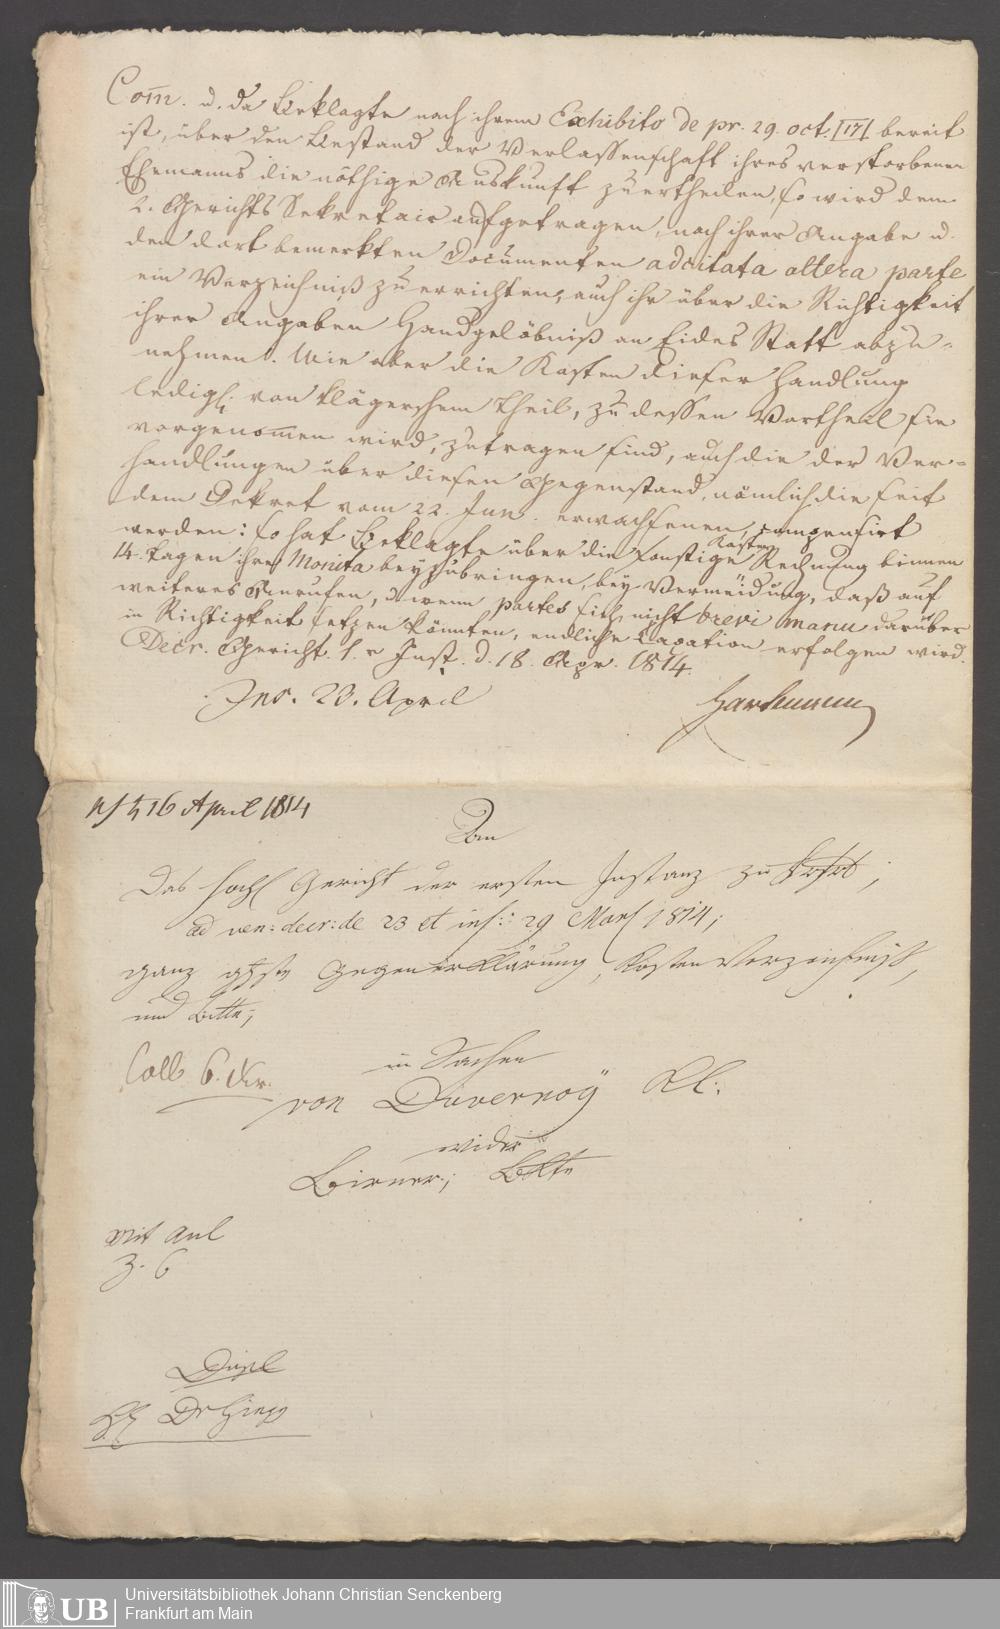 Com̅. u. da Beklagte nach ihrem Exhibito de pr. 29. oct. [17] bereit
ist, über den Bestand der Verlassenschaft ihres verstorbenen
Ehemanns die nöthige Auskunft zu ertheilen, so wird dem
2. Gerichts Sekretair aufgetragen, nach ihrer Angabe u.
den dort bemerkten Documenten adcitata altera parte
ein Verzeichniß zu errichten, auch ihr über die Richtigkeit
ihrer Angaben Handgelöbniß an Eides Statt abzu-
nehmen. Wie aber die Kosten dieser Handlung
ledigl. von klägerschem Theil, zu dessen Vortheil sie
vorgenom̅en wird, zu tragen sind, auch die der Ver-
handlungen über diesen Gegenstand, nämlich die seit
dem Dekret vom 22. Jun. erwachsenen, compensirt
werden: so hat Beklagte über die sonstige Kosten Rechnung binnen
14 Tagen ihre Monita beyzubringen, bey Vermeidung, daß auf
weiteres Anrufen, u. wenn partes sich nicht brevi manu darüber
in Richtigkeit setzen könnten, endliche Taxation erfolgen wird.
Decr. Gericht. 1.r Inst. d. 18. Apr. 1814.
Ins. 23. April
Hartmann
16 April 1814
An
Das Gericht der ersten Instanz zu
ad ven: decr: de 23 et ins: 29 Mars 1814;
ganz Gegenerklärung, Kosten Verzeichniß,
und Bitte;
Coll 6. Xr.
in Sachen
von Duvernoÿ Kl.
wider
Birner; Bklte
Mit Anl
3. 6
Dupl
Dr
UB
Universitätsbibliothek Johann Christian Senckenberg
Frankfurt am Main